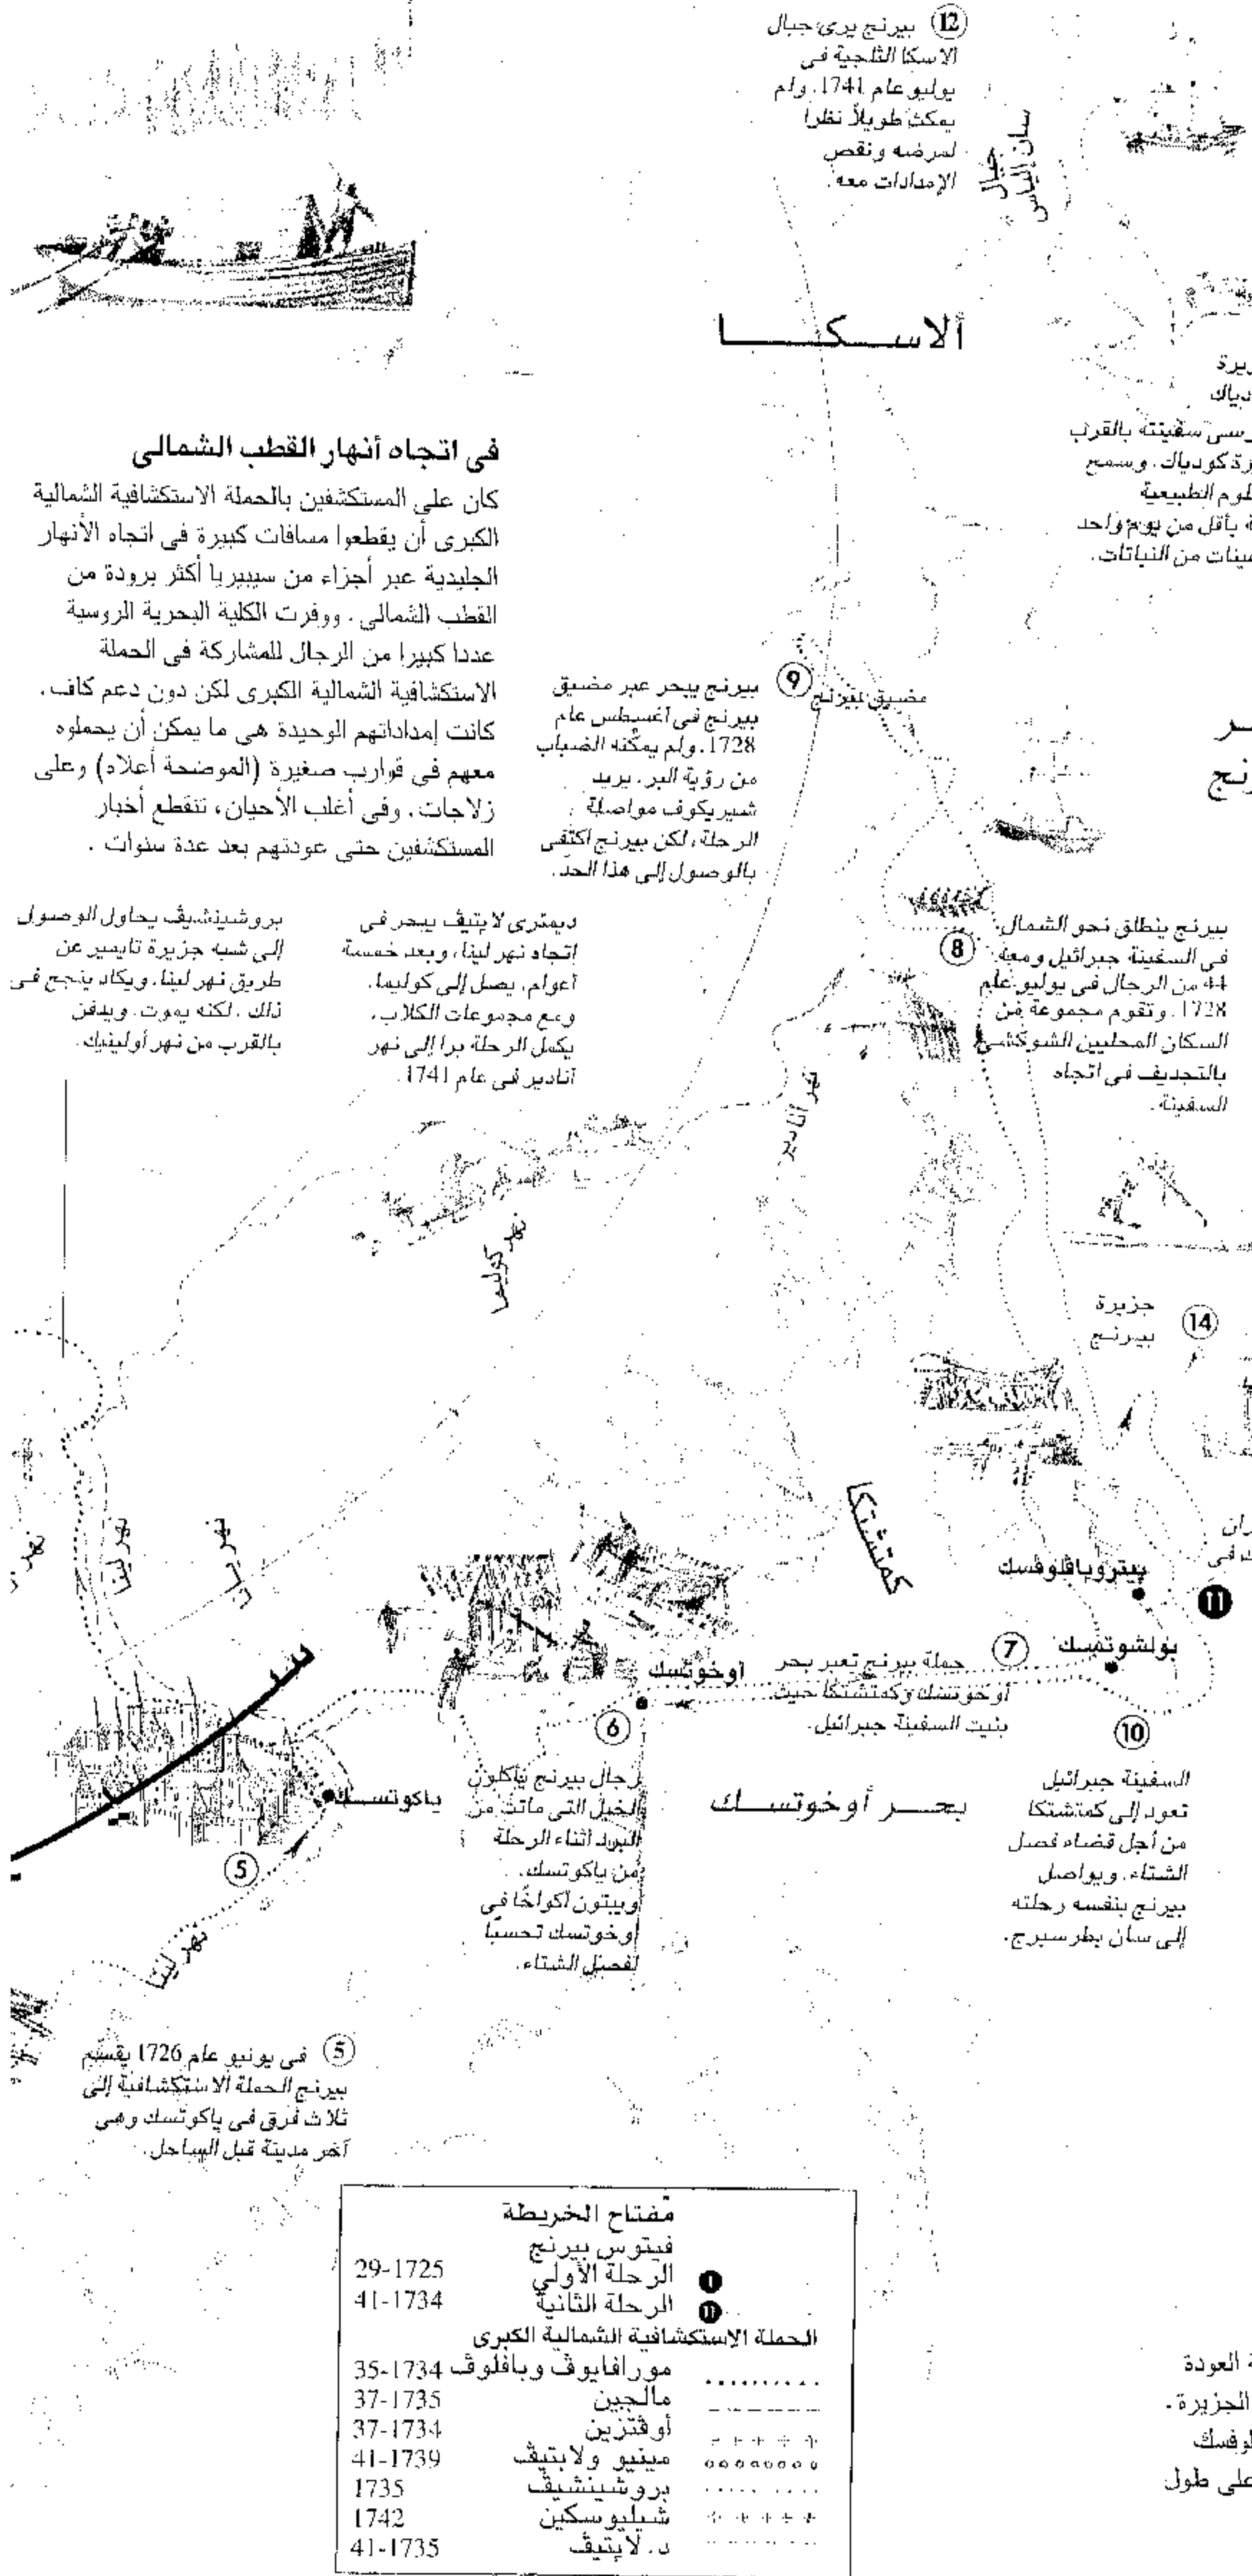 ⑫ بيرنج يرى جبال
الاسكا الثلجية فى
يوليو عام 1741. ولم
يمكث طويلاً نظرا
لمرضه ونقص
الإمدادات معه.
جبال
سان إلياس
ألاسكا
زيرة
دياك
رسى سفينته بالقرب
زة كودياك. وسمع
لوم الطبيعية
ة بأقل من يوم واحد
عينات من النباتات.
فى اتجاه أنهار القطب الشمالى
كان على المستكشفين بالحملة الاستكشافية الشمالية
الكبرى أن يقطعوا مسافات كبيرة فى اتجاه الأنهار
الجليدية عبر أجزاء من سيبيريا أكثر برودة من
القطب الشمالى. ووفرت الكلية البحرية الروسية
عددا كبيرا من الرجال للمشاركة فى الحملة
الاستكشافية الشمالية الكبرى لكن دون دعم كاف.
كانت إمداداتهم الوحيدة هى ما يمكن أن يحملوه
معهم فى قوارب صغيرة (الموضحة أعلاه) وعلى
زلاجات. وفى أغلب الأحيان، تنقطع أخبار
المستكشفين حتى عودتهم بعد عدة سنوات.
مضيق بيرنج
⑨ بيرنج يبحر عبر مضيق
بيرنج فى أغسطس عام
1728. ولم يمكّنه الضباب
من رؤية البر. يريد
شيريكوف مواصلة
الرحلة، لكن بيرنج اكتفى
بالوصول إلى هذا الحدّ.
ـر
رنج
⑧ بيرنج ينطلق نحو الشمال
فى السفينة جبرائيل ومعه
44 من الرجال فى يوليو عام
1728. وتقوم مجموعة من
السكان المحليين الشوكشى
بالتجديف فى اتجاه
السفينة.
ديمترى لابتيڤ يبحر فى
اتجاه نهر لينا، وبعد خمسة
أعوام، يصل إلى كوليما.
ومع مجموعات الكلاب،
يكمل الرحلة برا إلى نهر
أنادير فى عام 1741.
بروشينشيڤ يحاول الوصول
إلى شبه جزيرة تايمير عن
طريق نهر لينا. ويكاد ينجح فى
ذلك. لكنه يموت. ويدفن
بالقرب من نهر أولينيك.
نهر أنادير
نهر كوليما
جزيرة
بيرنج
⑭
كمتشتكا
نهر لينا
بيتروبافلوفسك
⓫
بولشوتسك
⑦ حملة بيرنج تعبر بحر
أوخوتسك وكمتشتكا حيث
بنيت السفينة جبرائيل.
أوخوتسك
⑥
رجال بيرنج يأكلون
الخيل التى ماتت من
البرد أثناء الرحلة
من ياكوتسك.
ويبنون أكواخًا فى
أوخوتسك تحسبًا
لفصل الشتاء.
بحر أوخوتسك
⑩
السفينة جبرائيل
تعود إلى كمتشتكا
من أجل قضاء فصل
الشتاء. ويواصل
بيرنج بنفسه رحلته
إلى سان بطرسبرج.
ياكوتسك
⑤
نهر لينا
⑤ فى يونيو عام 1726 يقسم
بيرنج الحملة الاستكشافية إلى
ثلاث فرق فى ياكوتسك وهى
آخر مدينة قبل الساحل.
مفتاح الخريطة
فيتوس بيرنج
❶ الرحلة الأولي 1725-29
⓫ الرحلة الثانية 1734-41
الحملة الاستكشافية الشمالية الكبرى
مورافايوڤ وبافلوڤ 1734-35
مالجين 1735-37
أوڤتزين 1734-37
مينيو ولابتيڤ 1739-41
بروشينشيڤ 1735
شيليوسكين 1742
د. لابتيڤ 1735-41
ة العودة
الجزيرة.
لوفسك
على طول